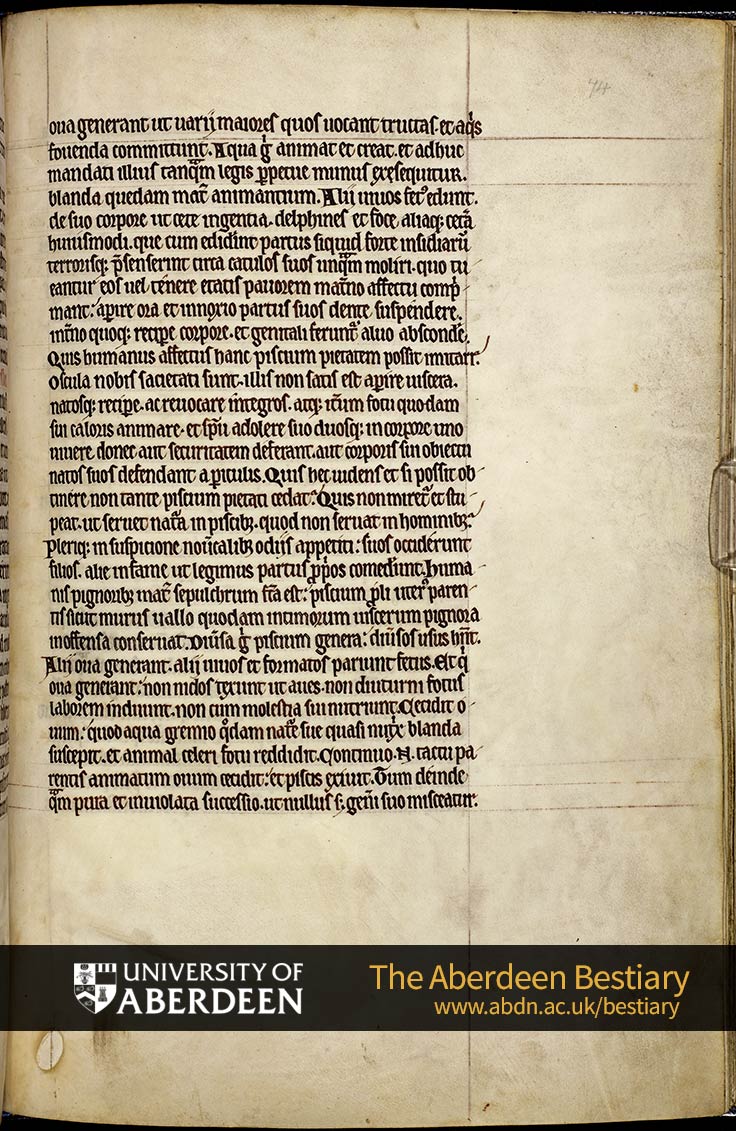 74
oua generant ut uarii maiores quos uocant tructas. et aq̾s
fouenda committunt. Aqua g̾ animat et creat. et adhuc
mandati illius tanq̃m legis ꝑpetue munus exesequitur.
blanda quedam mat̾ animantium. Alii uiuos fet᷒ edunt.
de suo corpore ut cete ingentia. delphines et foce. aliaq; cet̾a
huiusmodi. que cum edidint̾ partus siquid forte insidiarū
terrorisq; p̃senserint circa catulos suos unq̃m moliri. quo tu-
eantur eos uel tenere etatis pauorem mat̾no affectu comp̃-
mant: aꝑire ora et innoxio partus suos dente suspendere.
int̾no quoq; reciꝑe corpore. et genitali ferunt̾ aluo absconde̾.
Quis humanus affectus hanc piscium pietatem possit imitari.
Oscula nobis sacietati sunt. illis non satis est aꝑire uiscera.
natosq; reciꝑe. ac reuocare integros. atq; it̾um fotu quodam
sui caloris animare. et sp̃u adolere suo duosq; in corpore uno
uiuere. donec aut securitatem deferant. aut corporis sui obiectu
natos suos defendant a ꝑiculis. Quis hec uidens et si possit ob-
tinere non tante piscium pietati cedat: Quis non miret̾ et stu-
peat. ut seruet nat̾a in piscib; quod non seruat in hominib;
Pleriq; in suspicione nou̾calib; odiis appetiti: suos occiderunt
filios. alie in fame ut legimus partus ꝓpos comedunt̾. Huma-
nis pignorib; mat̾ sepulchrum fc̃a est: piscium ꝓli uter᷒ paren-
tis sicut murus uallo quodam intimorum uiscerum pignora
inoffensa conseruat. Diu̾sa g̾ piscium genera: diu̾sos usus hñt.
Alii oua generant. alii uiuos et formatos pariunt fetus. Et q̾
oua generant: non nidos texunt ut aues. non diuturni fotus
laborem induunt. non cum molestia sui nutriunt. Cecidit o-
uum: quod aqua gremio q̾dam nat̾e sue quasi nut̾x blanda
suscepit. et animal celeri fotu reddidit. Continuo .N. tactu pa-
rentis animatum ouum cecidit: et piscis exiuit. Tum deinde
q̃m pura et inuiolata successio. ut nullus s; gen̾i suo misceatur.
UNIVERSITY OF
ABERDEEN
The Aberdeen Bestiary
www.abdn.ac.uk/bestiary